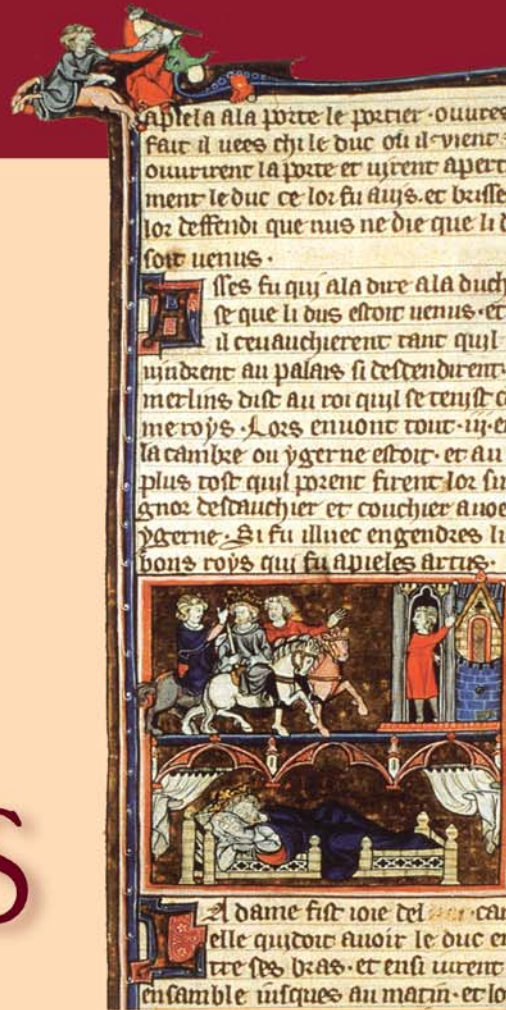 apiela ala porte le portier · ouures
fait il uees chi le duc ou il vient ·
ouurirent la porte et uirent apert
ment le duc ce lor fu auis · et brisse
lor deffendi que nus ne die que li d
soit uenus ·
Asses fu qui ala dire ala duch
se que li dus estoit uenus · et
il ceuauchierent tant quil
uindrent au palais si descendirent ·
merlins dist au roi quil se tenist co
me roys · Lors enuont tout · iij · en
la cambre ou ygerne estoit · et au
plus tost quil porent firent lor sin
gnor descauchier et couchier auoec
ygerne · Si fu illuec engendres li
bons roys qui fu apieles artus ·
La dame fist ioie del cam
elle quidoit auoir le duc en
tre ses bras · et ensi iurent
ensamble iusques au matin · et lo
S